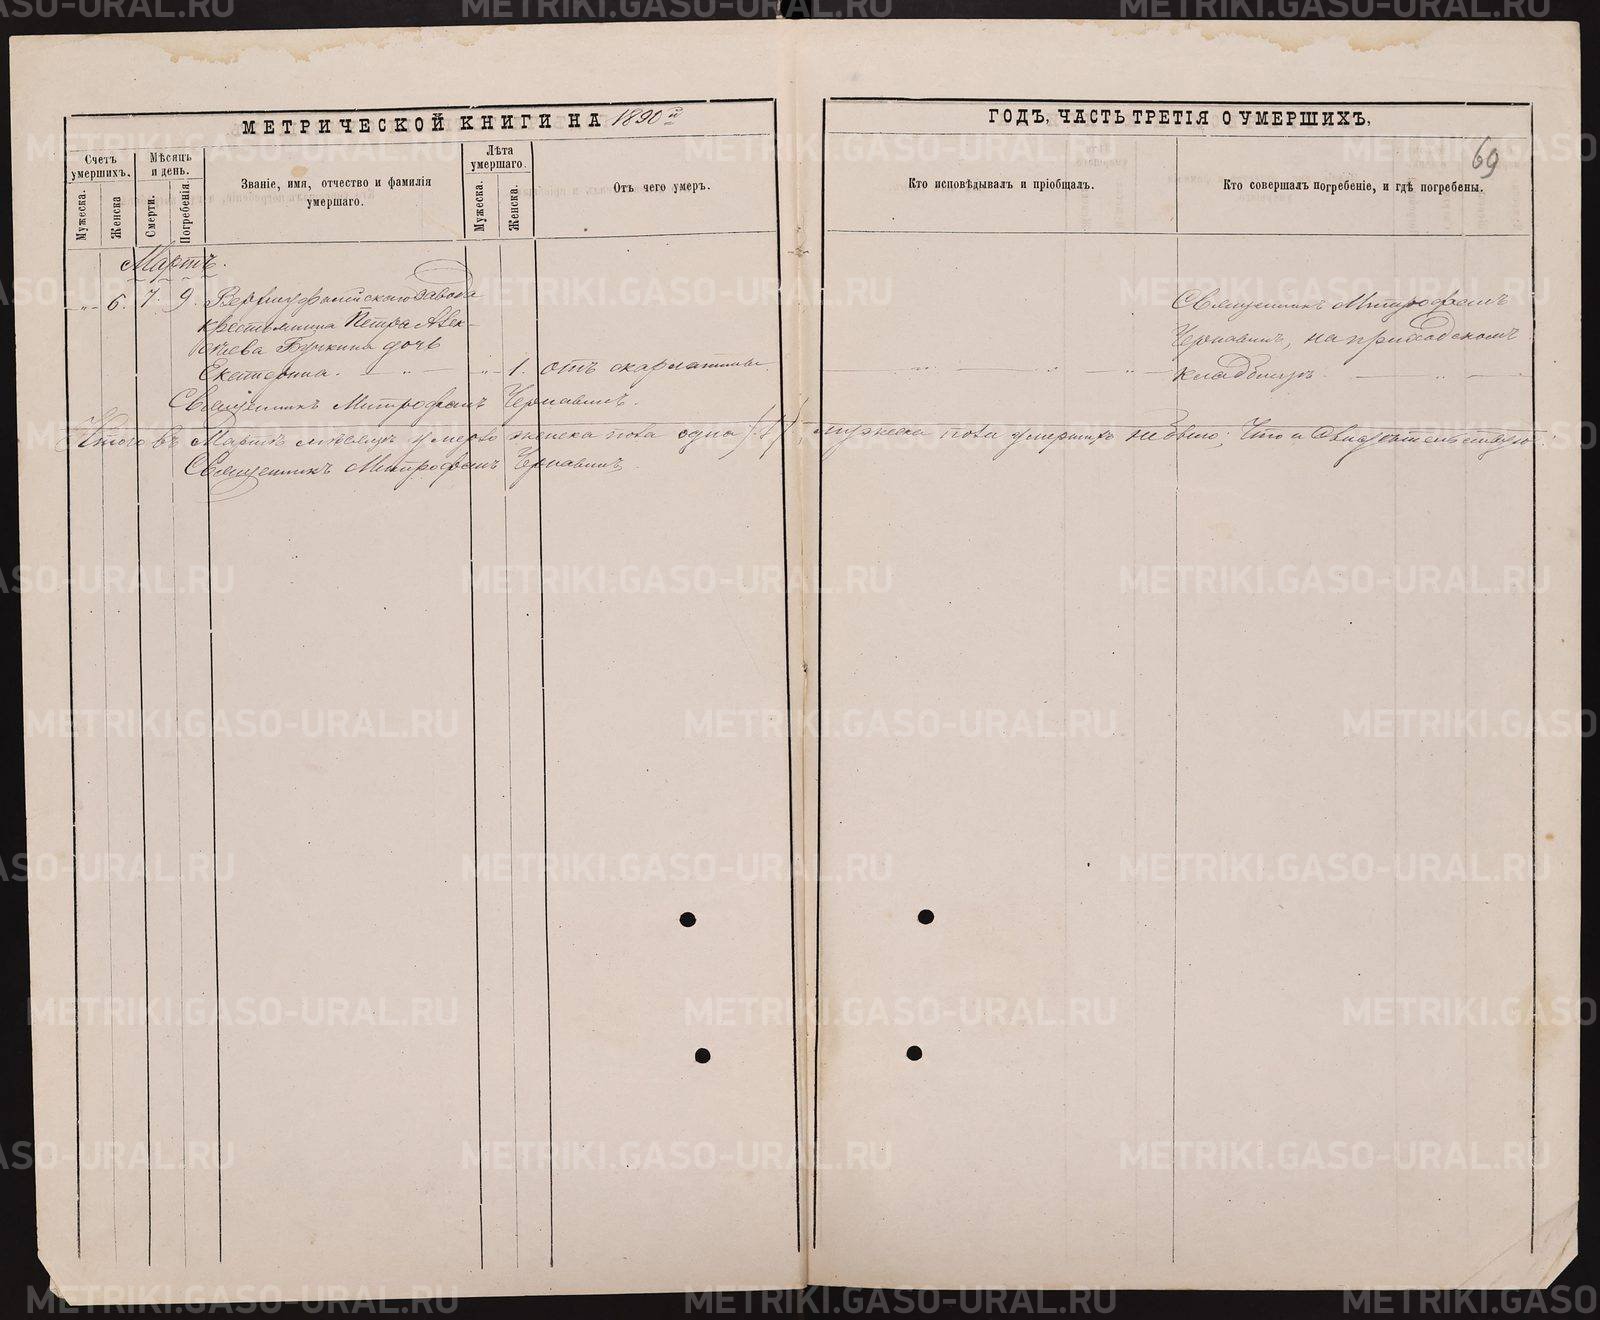 МЕТРИЧЕСКОЙ КНИГИ НА 1890 й
ГОДЪ, ЧАСТЬ ТРЕТІЯ О УМЕРШИХЪ,
69
Счетъ умершихъ.
Мужеска.
Женска
Мѣсяцъ и день.
Смерти.
Погребенія.
Званіе, имя, отчество и фамилія
умершаго.
Лѣта умершаго.
Мужеска.
Женска.
Отъ чего умеръ.
Кто исповѣдывалъ и пріобщалъ.
Кто совершалъ погребеніе, и гдѣ погребены.
Мартъ.
„ 6. 7. 9. Верхнеуфалейскаго завода
крестьянина Петра Алек-
сѣева дочь
Екатерина. — „ — „ 1. отъ скарлатины
Священникъ Митрофанъ
Чернавинъ, на приходскомъ
кладбищѣ
Священникъ Митрофанъ Чернавинъ.
Итого въ Мартѣ мѣсяцѣ умерло женска пола одна /1/, мужеска пола умершихъ не было; Что и свидѣтельствую:
Священникъ Митрофанъ Чернавинъ.
METRIKI.GASO-URAL.RU